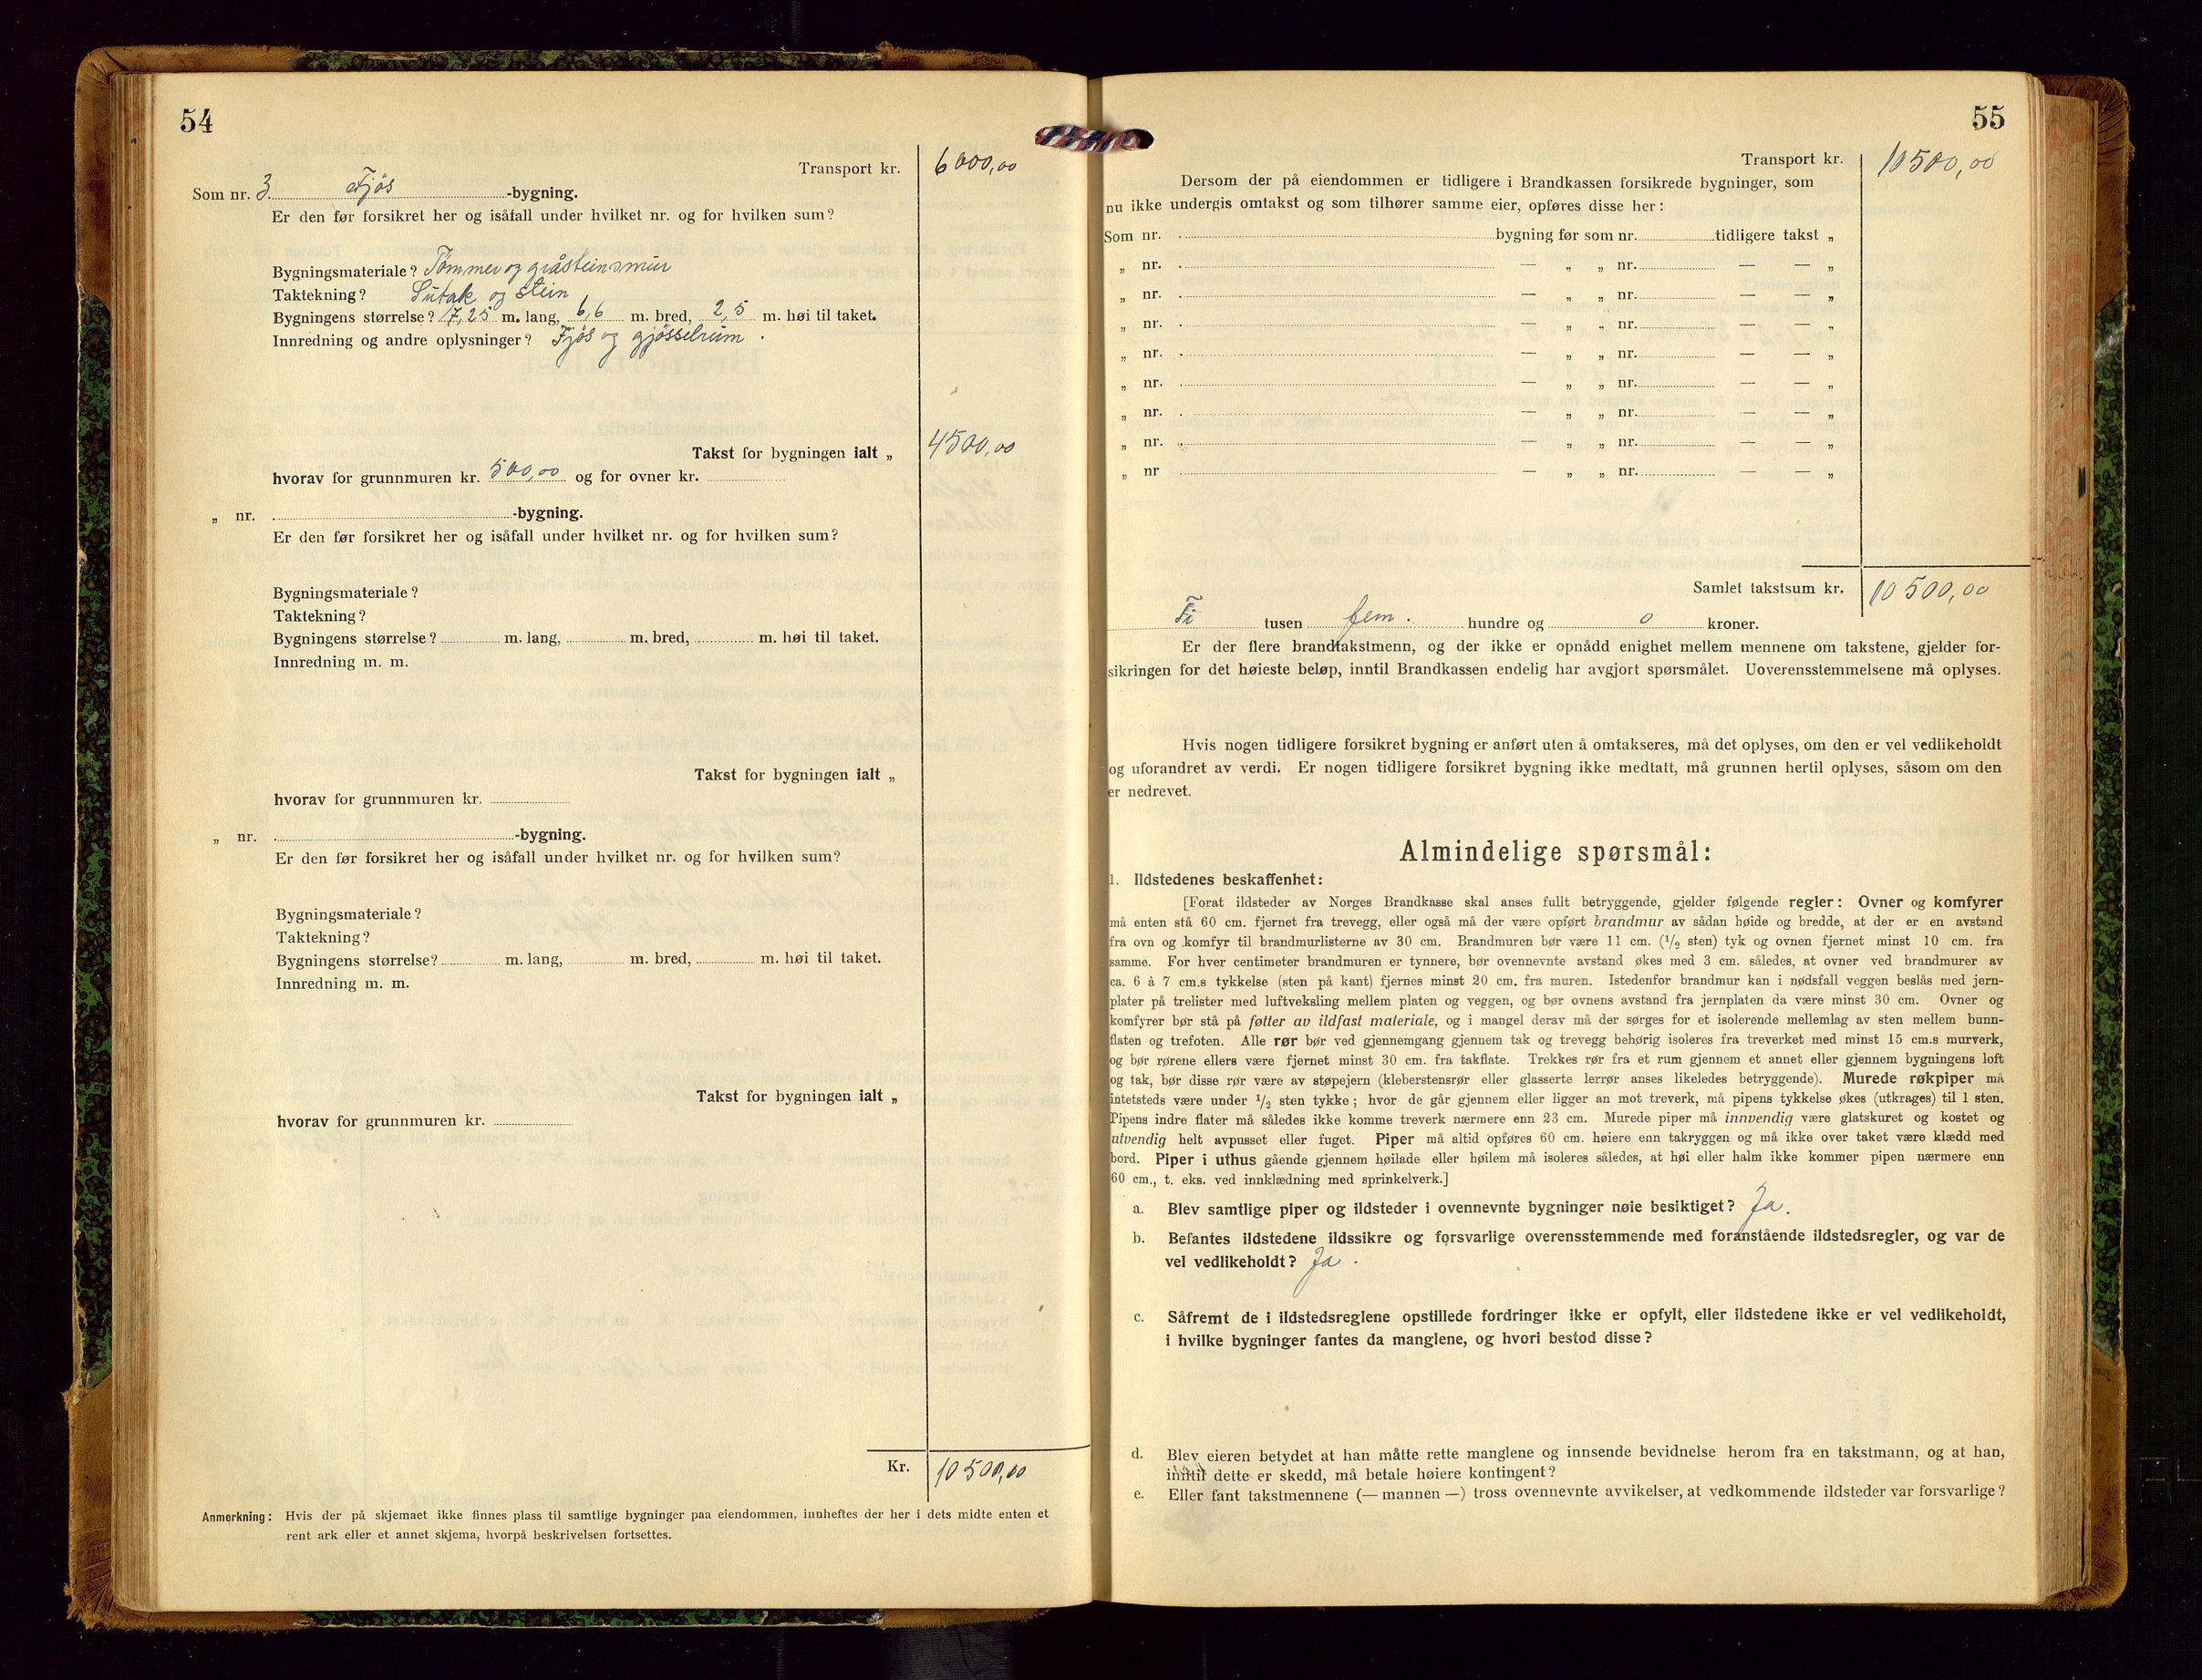 54
Transport kr. 6000,00
Som nr. 3. Fjøs -bygning.
Er den før forsikret her og isåfall under hvilket nr. og for hvilken sum?
Bygningsmateriale? Tømmer og gråsteinsmur
Taktekning? Sutak og stein
Bygningens størrelse? 17,25 m. lang, 6,6 m. bred, 2,5 m. høi til taket.
Innredning og andre oplysninger? Fjøs og gjøsselrum.
Takst for bygningen ialt „ 4500,00
hvorav for grunnmuren kr. 500,00 og for ovner kr.
„ nr. -bygning.
Er den før forsikret her og isåfall under hvilket nr. og for hvilken sum?
Bygningsmateriale?
Taktekning?
Bygningens størrelse? m. lang, m. bred, m. høi til taket.
Innredning m. m.
Takst for bygningen ialt „
hvorav for grunnmuren kr.
„ nr. -bygning.
Er den før forsikret her og isåfall under hvilket nr. og for hvilken sum?
Bygningsmateriale?
Taktekning?
Bygningens størrelse? m. lang, m. bred, m. høi til taket.
Innredning m. m.
Takst for bygningen ialt „
hvorav for grunnmuren kr.
Kr. 10500,00
Anmerkning: Hvis der på skjemaet ikke finnes plass til samtlige bygninger paa eiendommen, innheftes der her i dets midte enten et
rent ark eller et annet skjema, hvorpå beskrivelsen fortsettes.
55
Transport kr. 10500,00
Dersom der på eiendommen er tidligere i Brandkassen forsikrede bygninger, som
nu ikke undergis omtakst og som tilhører samme eier, opføres disse her:
Som nr. bygning før som nr. tidligere takst „
„ nr. — „ „ nr. — — „
„ nr. — „ „ nr. — — „
„ nr. — „ „ nr. — — „
„ nr. — „ „ nr. — — „
„ nr. — „ „ nr. — — „
„ nr. — „ „ nr. — — „
„ nr. — „ „ nr. — — „
„ nr — „ „ nr. — — „
Samlet takstsum kr. 10500,00
Ti tusen fem. hundre og 0 kroner.
Er der flere brandtakstmenn, og der ikke er opnådd enighet mellem mennene om takstene, gjelder for-
sikringen for det høieste beløp, inntil Brandkassen endelig har avgjort spørsmålet. Uoverensstemmelsene må oplyses.
Hvis nogen tidligere forsikret bygning er anført uten å omtakseres, må det oplyses, om den er vel vedlikeholdt
og uforandret av verdi. Er nogen tidligere forsikret bygning ikke medtatt, må grunnen hertil oplyses, såsom om den
er nedrevet.
Almindelige spørsmål:
1. Ildstedenes beskaffenhet:
[Forat ildsteder av Norges Brandkasse skal anses fullt betryggende, gjelder følgende regler: Ovner og komfyrer
må enten stå 60 cm. fjernet fra trevegg, eller også må der være opført brandmur av sådan høide og bredde, at der er en avstand
fra ovn og komfyr til brandmurlisterne av 30 cm. Brandmuren bør være 11 cm. (1/2 sten) tyk og ovnen fjernet minst 10 cm. fra
samme. For hver centimeter brandmuren er tynnere, bør ovennevnte avstand økes med 3 cm. således, at ovner ved brandmurer av
ca. 6 à 7 cm.s tykkelse (sten på kant) fjernes minst 20 cm. fra muren. Istedenfor brandmur kan i nødsfall veggen beslås med jern-
plater på trelister med luftveksling mellem platen og veggen, og bør ovnens avstand fra jernplaten da være minst 30 cm. Ovner og
komfyrer bør stå på føtter av ildfast materiale, og i mangel derav må der sørges for et isolerende mellemlag av sten mellem bunn-
flaten og trefoten. Alle rør bør ved gjennemgang gjennem tak og trevegg behørig isoleres fra treverket med minst 15 cm.s murverk,
og bør rørene ellers være fjernet minst 30 cm. fra takflate. Trekkes rør fra et rum gjennem et annet eller gjennem bygningens loft
og tak, bør disse rør være av støpejern (kleberstensrør eller glasserte lerrør anses likeledes betryggende). Murede røkpiper må
intetsteds være under 1/2 sten tykke; hvor de går gjennem eller ligger an mot treverk, må pipens tykkelse økes (utkrages) til 1 sten.
Pipens indre flater må således ikke komme treverk nærmere enn 23 cm. Murede piper må innvendig være glatskuret og kostet og
utvendig helt avpusset eller fuget. Piper må altid opføres 60 cm. høiere enn takryggen og må ikke over taket være klædd med
bord. Piper i uthus gående gjennem høilade eller høilem må isoleres således, at høi eller halm ikke kommer pipen nærmere enn
60 cm., t. eks. ved innklædning med sprinkelverk.]
a. Blev samtlige piper og ildsteder i ovennevnte bygninger nøie besiktiget? Ja.
b. Befantes ildstedene ildssikre og forsvarlige overensstemmende med foranstående ildstedsregler, og var de
vel vedlikeholdt? Ja.
c. Såfremt de i ildstedsreglene opstillede fordringer ikke er opfylt, eller ildstedene ikke er vel vedlikeholdt,
i hvilke bygninger fantes da manglene, og hvori bestod disse?
d. Blev eieren betydet at han måtte rette manglene og innsende bevidnelse herom fra en takstmann, og at han,
inntil dette er skedd, må betale høiere kontingent?
e. Eller fant takstmennene (— mannen —) tross ovennevnte avvikelser, at vedkommende ildsteder var forsvarlige?